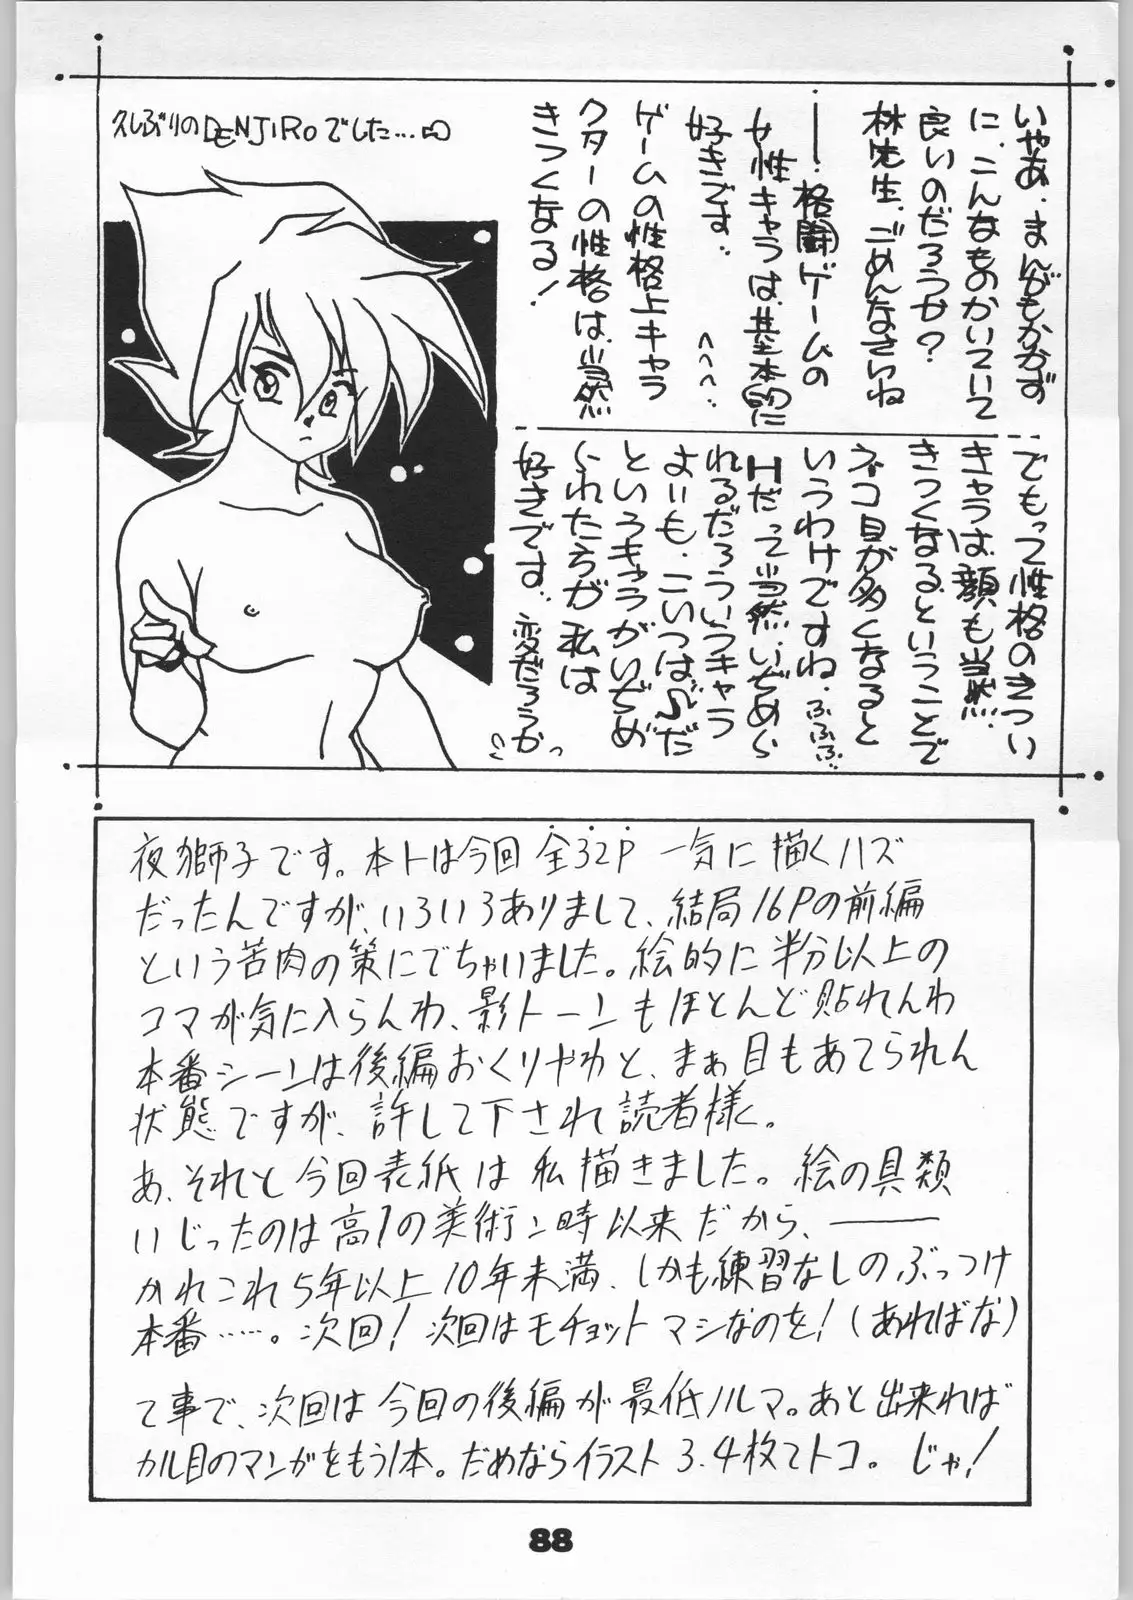 久しぶりのDENJIROでした…
いやあ、まんがもかかず
に、こんなものかいていて
良いのだろうか?
林先生、ごめんなさいね
!格闘ゲームの
女性キャラは基本的に
好きです。
ゲームの性格上キャラ
クターの性格は、当然
きつくなる!
でもって性格のきつい
キャラは、顔も当然、
きつくなるということで
ネコ目が多くなると
いうわけですね、ふふふ
Hだって当然、いぢめら
れるだろういうキャラ
よいも、こいつは♪だ
といろキャラがいぢめ
られた方が私は
好きです。変だろうか
夜獅子です。本トは今回 全32P 一気に描くハズ
だったんですが、いろいろありまして、結局16Pの前編
という苦肉の策にでちゃいました。絵的に半分以上の
コマが気に入らんわ、影トーンもほとんど貼れんわ
本番シーンは後編おくりやわと、まぁ目もあてられん
状態ですが、許して下され読者様。
あ、それと今回表紙は私描きました。絵の具類
いじったのは高1の美術ン時以来だから、――
かれこれ5年以上10年未満、しかも練習なしのぶっつけ
本番……。次回!次回はモチョットマシなのを!(あればな)
て事で、次回は今回の後編が最低ノルマ。あと出来れば
カル目のマンガをもう1本。だめならイラスト3、4枚てトコ。じゃ!
88